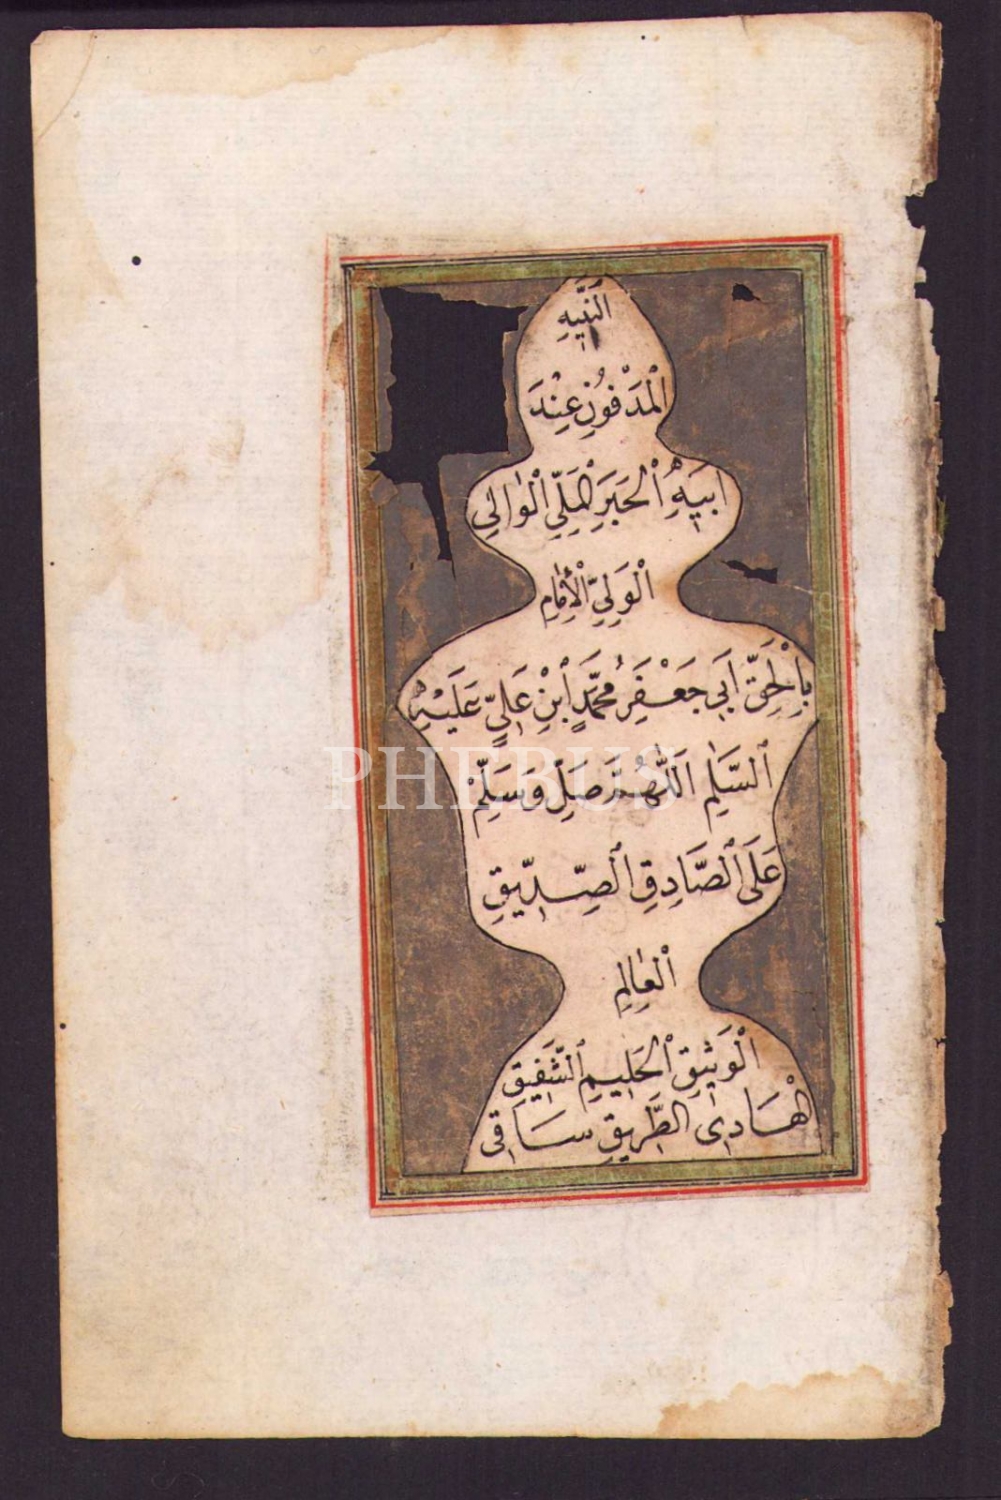 اَلنَّبِيهِ
اَلْمَدْفُونِ عِنْدَ
اَبِيهِ اَلْحَبَرِ الْمَلِيِّ الْوٰالِي
اَلْوَلِيِّ الْاِمٰامِ
بِالْحَقِّ اَبِي جَعْفَرٍ مُحَمَّدٍ اَبْنِ عَلِيٍّ عَلَيْهِ
اَلسَّلٰمِ اَللّٰهُمَّ صَلِّ وَسَلِّمْ
عَلَى اَلصَّادِقِ اَلصِّدِّيقِ
اَلْعٰالِمِ
اَلْوَثِيقِ اَلْحَلِيمِ اَلشَّفِيقِ
الْهَادِى الطَّرِيقِ سَاقِى
PHEBUS